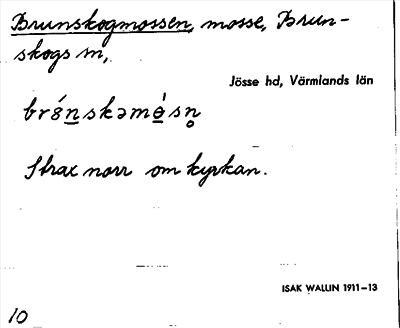 Brunskogmossen, mosse, Brun-
skogs sn,
Jösse hd, Värmlands län
Strax norr om kyrkan.
ISAK WALLIN 1911–13
10